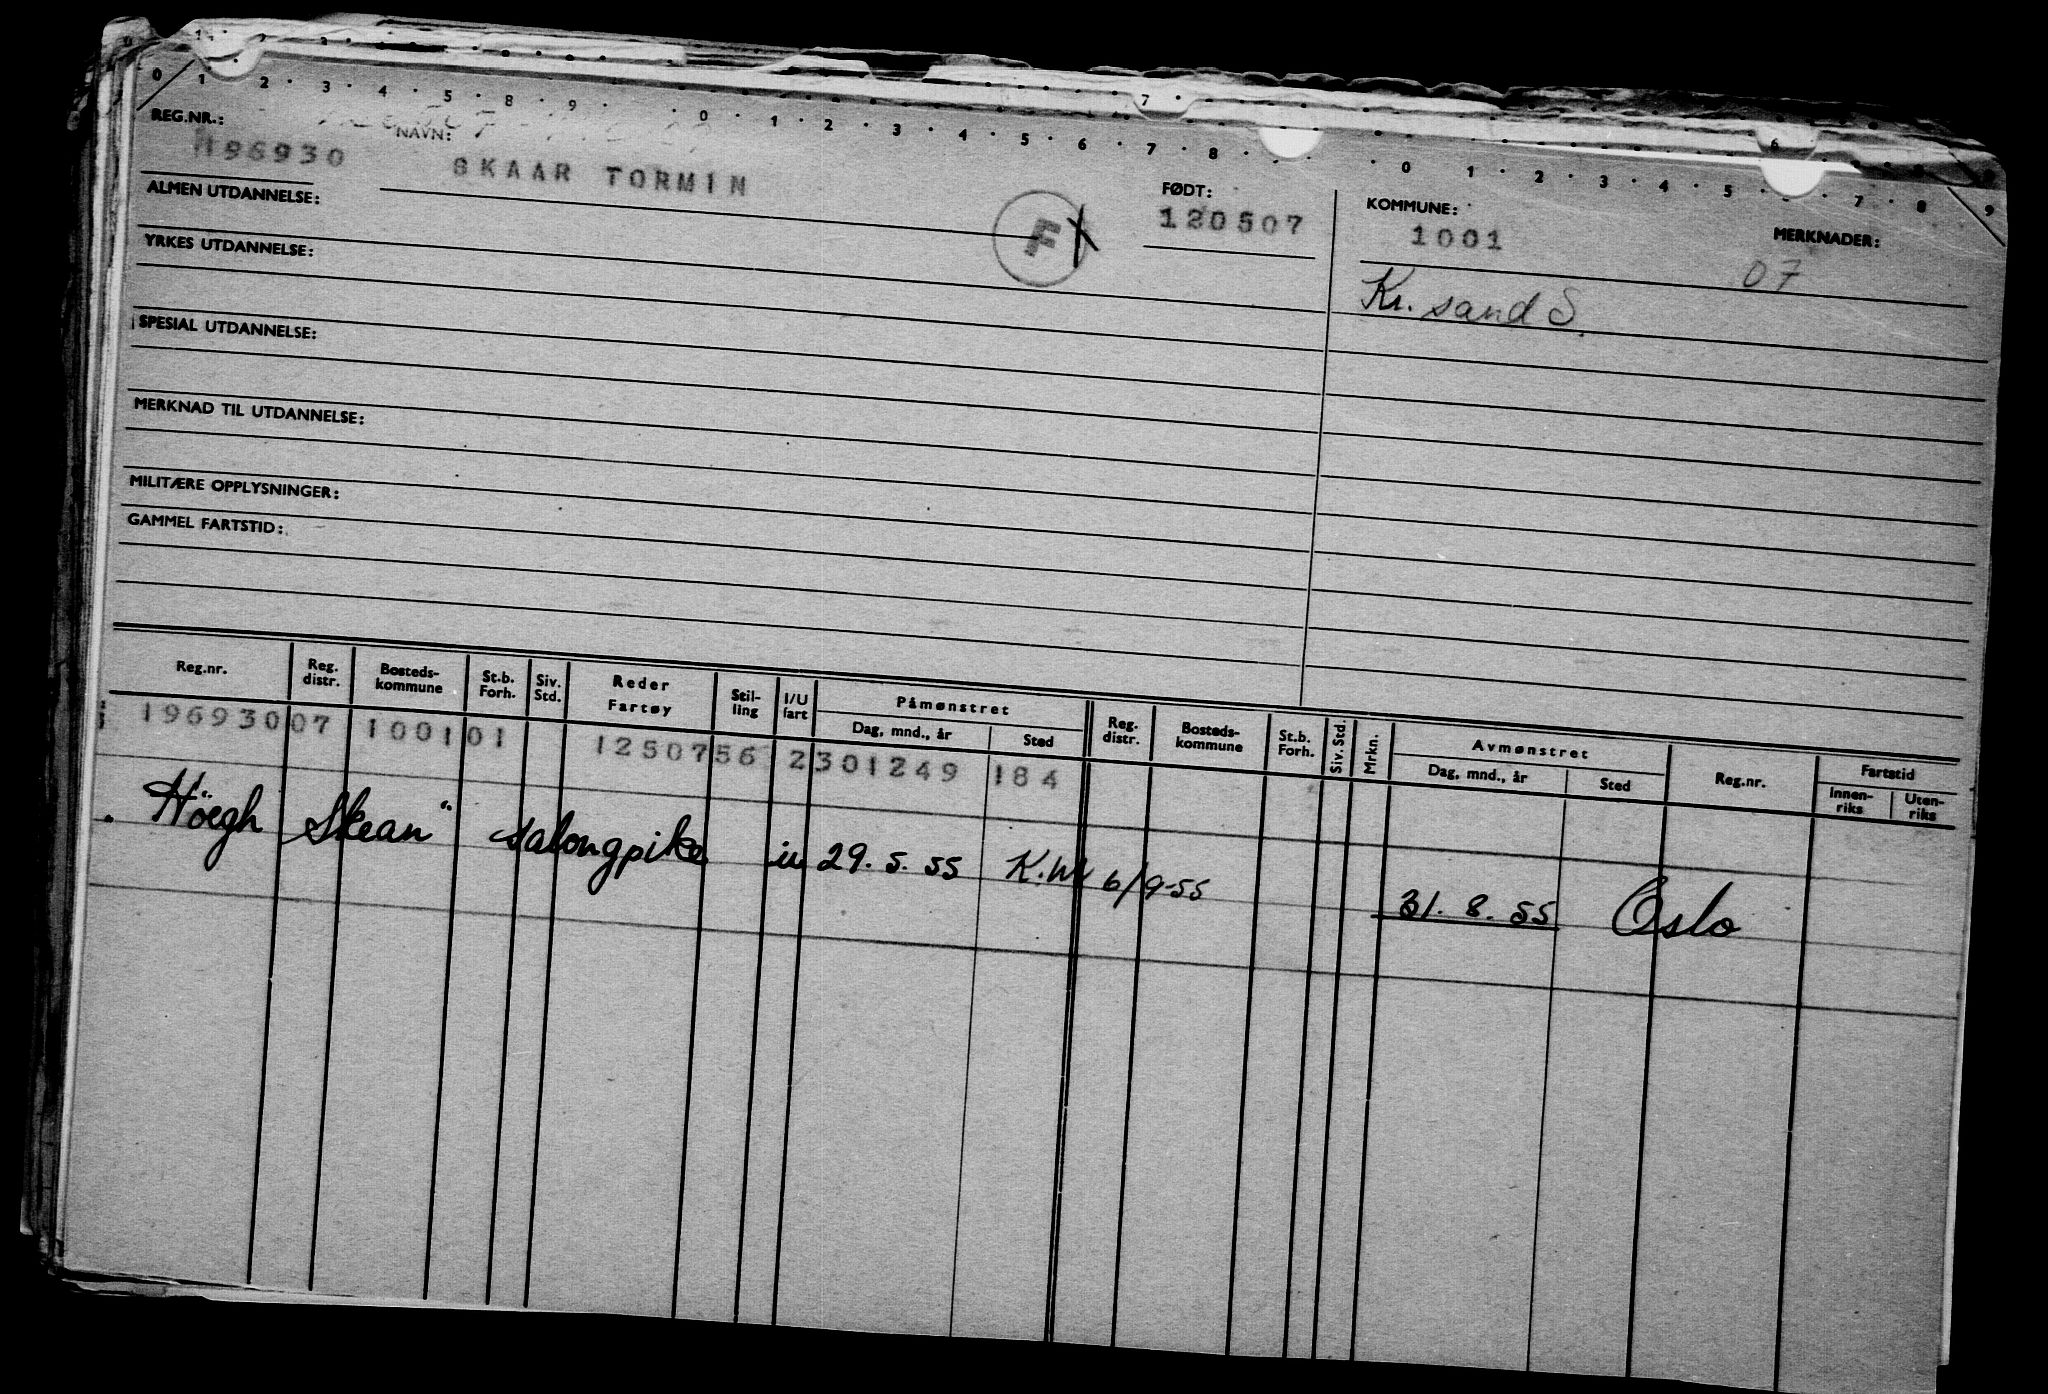 0 1 2 3 4 5 8 9 0 1 2 3 4 5 6 7 8 0 1 2 3 4 5 7 8 9
REG.NR.: NAVN: FØDT: KOMMUNE: MERKNADER:
196930 SKAAR TORMIN 120507 1001 07
F
Kr. sand S.
ALMEN UTDANNELSE:
YRKES UTDANNELSE:
SPESIAL UTDANNELSE:
MERKNAD TIL UTDANNELSE:
MILITÆRE OPPLYSNINGER:
GAMMEL FARTSTID:
Reg.nr. Reg. distr. Bosteds-kommune St.b. Forh. Siv. Std. Reder Fartøy Stil-ling I/U fart Påmønstret Dag, mnd., år Sted Reg. distr. Bosteds-kommune St.b. Forh. Siv. Std. Mrkn. Avmønstret Dag, mnd., år Sted Reg.nr. Fartstid Innen-riks Uten-riks
196930 07 1001 01 12507 56 2 301249 184
"Höegh Skean" salongpike u 29.5.55 6/9-55 31.8.55 Oslo